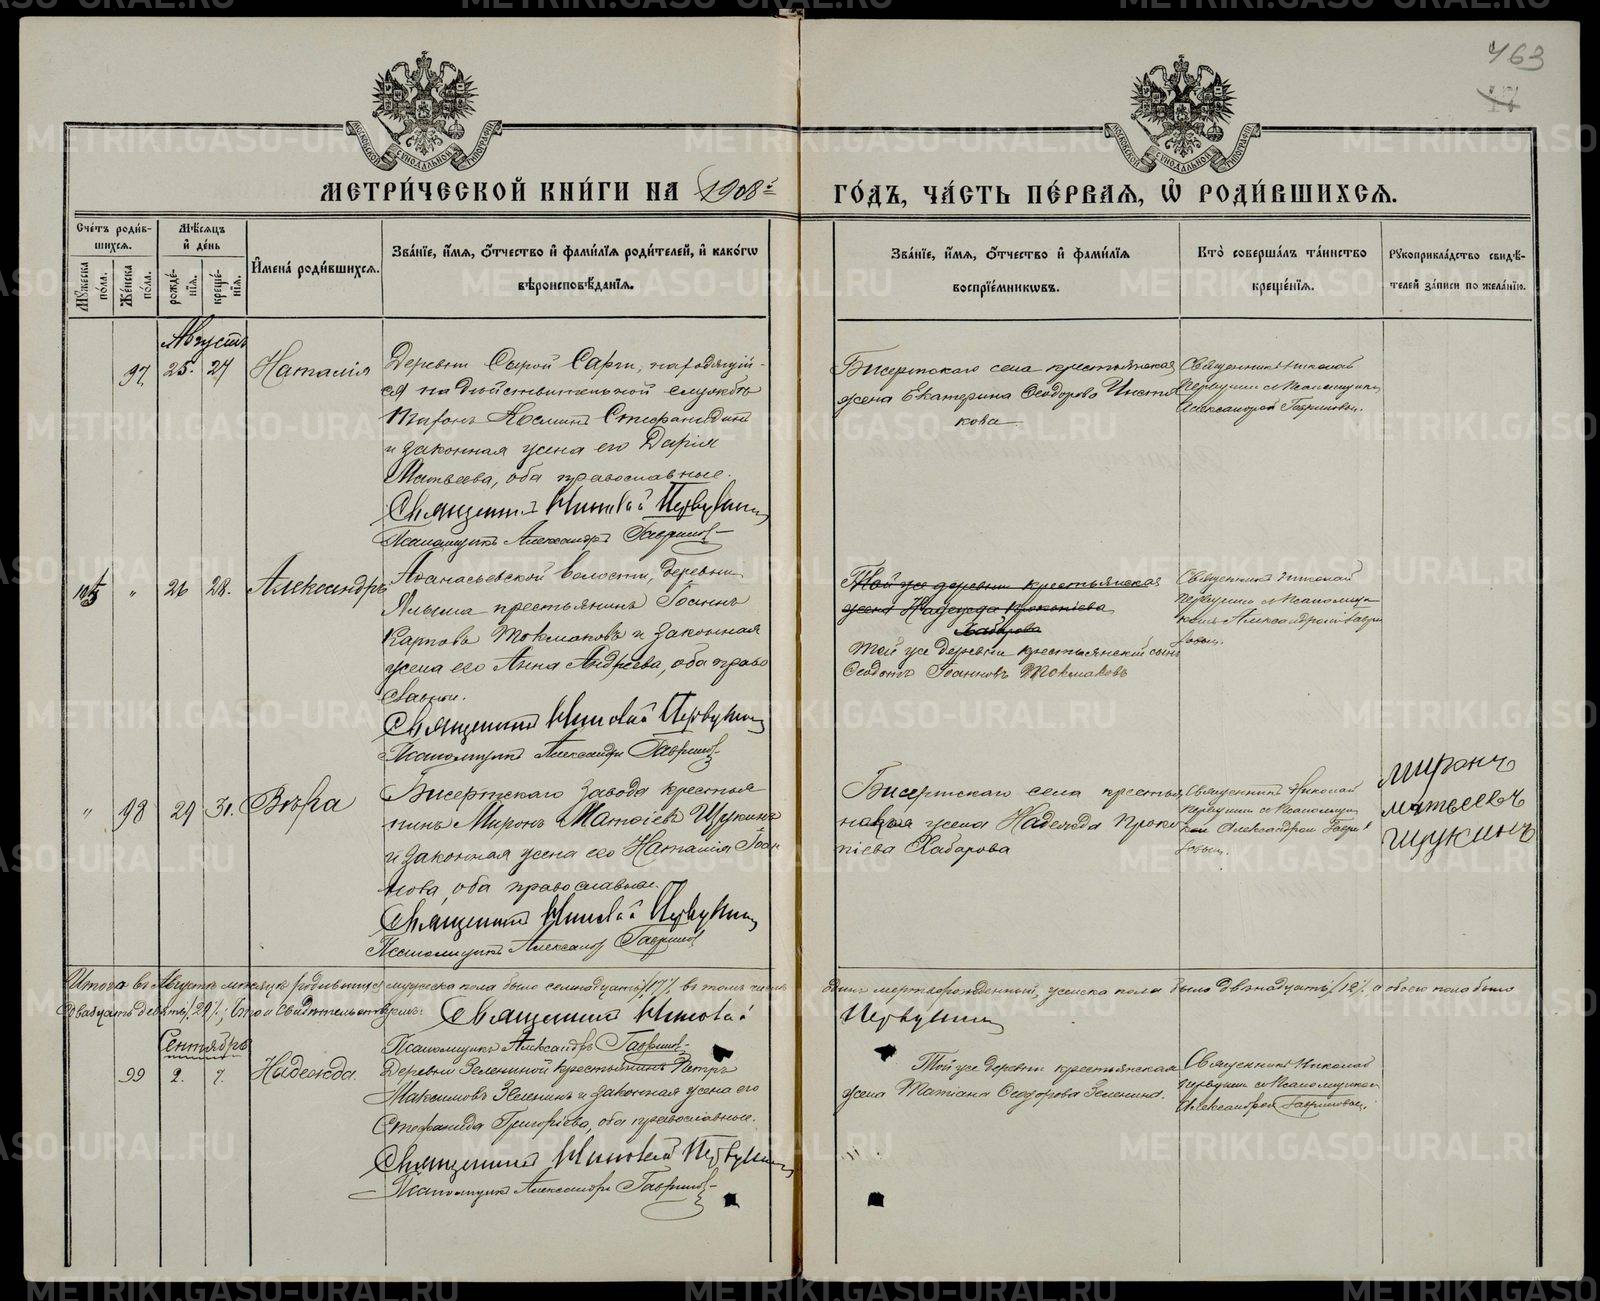 463
17
МОСКОВСКОЙ СѴНОДАЛЬНОЙ ТИПОГРАФІИ
МОСКОВСКОЙ СѴНОДАЛЬНОЙ ТИПОГРАФІИ
МЕТРИ́ЧЕСКОЙ КНИ́ГИ НА 1908й
ГО́ДЪ, ЧА́СТЬ ПЕ́РВАЯ, Ѡ РОДИ́ВШИХСЯ.
Сче́тъ роди́в-
шихся.
Му́жеска по́ла.
Же́нска по́ла.
Мѣ́сяцъ
и҆ де́нь
рожде́-
нїя.
креще́-
нїя.
И҆мена̀ роди́вшихся.
Зва́нїе, и҆́мя, ѻ҆́тчество и҆ фами́лїя роди́телей, и҆ како́гѡ
вѣроисповѣ́данїя.
Зва́нїе, и҆́мя, ѻ҆́тчество и҆ фами́лїя
воспрїе́мникѡвъ.
Кто̀ соверша́лъ та́инство
креще́нїя.
Рꙋкоприкла́дство свидѣ́-
телей за́писи по жела́нїю.
Августъ
97. 25. 27 Наталія
Деревни Сырой Сарги, находящій-
ся на дѣйствительной службѣ
Стефанидинъ
и законная жена его Дарія
Матвѣева, оба православные.
Священникъ Николай Первушинъ
Псаломщикъ Александръ Гавриловъ
Бисертскаго села крестьянская
жена Екатерина Ѳеодорова Чистя
кова
Священникъ Николай
Первушинъ съ псаломщикомъ
Александромъ Гавриловымъ.
105 " 26 28. Александръ
Аѳанасьевской волости, деревни
крестьянинъ Іоаннъ
Карповъ Токмаковъ и законная
жена его Анна Андреева, оба право
славные.
Священникъ Николай Первушинъ
Псаломщикъ Александръ Гавриловъ
Той же деревни крестьянская
жена Надежда Прокопіева
Хабарова
Той же деревни крестьянскій сынъ
Ѳеодотъ Іоанновъ Токмаковъ
Священникъ Николай
Первушинъ съ псаломщи
комъ Александромъ Гаври
ловымъ.
" 98 29 31. Вѣра
Бисертскаго завода крестья
нинъ Миронъ Матѳіевъ Щукинъ
и законная жена его Наталія Іоан
нова, оба православные.
Священникъ Николай Первушинъ
Псаломщикъ Александръ Гавриловъ
Бисертскаго села крестья
нская жена Надежда Проко
піева Хабарова
Священникъ Николай
Первушинъ съ псаломщи
комъ Александромъ Гаври
ловымъ.
Миронъ
Матвеевъ
Щукинъ
Итого въ Августѣ мѣсяцѣ родившихся мужеска пола было семнадцать /17/ въ томъ числѣ
одинъ мертворожденный, женска пола было двѣнадцать /12/ а обоего пола было
двадцать девять /29/, въ томъ свидѣтельствуемъ: Священникъ Николай
Первушинъ
Псаломщикъ Александръ Гавриловъ
Сентябрь
99 2. 7. Надежда.
Деревни Зелениной крестьянинъ Петръ
Максимовъ Зеленинъ и законная жена его
Стефанида Григоріева, оба православные.
Священникъ Николай Первушинъ
Псаломщикъ Александръ Гавриловъ
Той же деревни крестьянская
жена Татіана Ѳеодорова Зеленина.
Священникъ Николай
Первушинъ съ псаломщикомъ
Александромъ Гавриловымъ.
METRIKI.GASO-URAL.RU